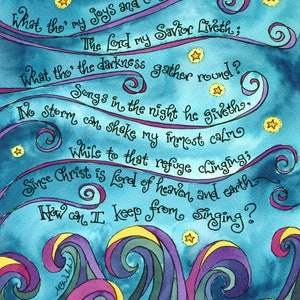 What tho' my joys and c
The Lord my Savior Liveth;
What tho' the darkness gather round?
Songs in the night he giveth,
No storm can shake my inmost calm
While to that refuge clinging;
Since Christ is Lord of heaven and earth
How can I keep from singing?